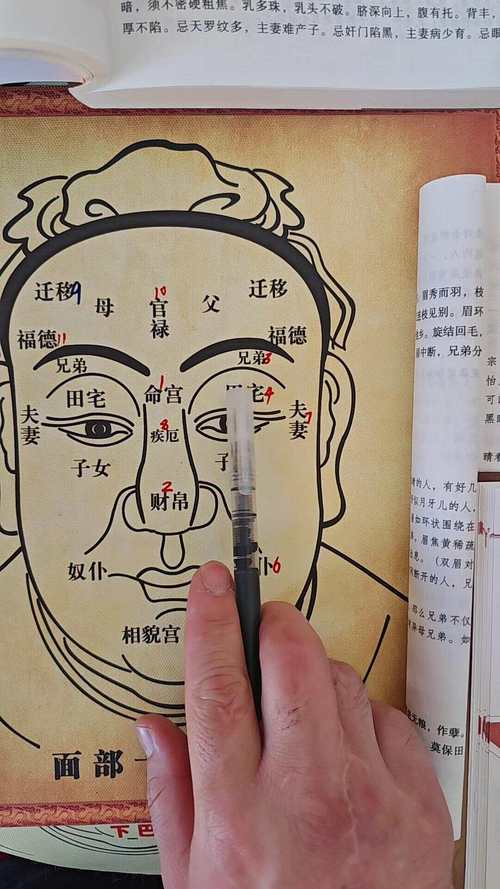 暗，须不密硬粗焦。乳多珠，乳头不破。脐深向上，腹有托。背丰，
厚不陷。忌天罗纹多，主妻难产子。忌奸门陷黑，主妻病少育。忌眼
迁移9
母
官禄
10
父
迁移
福德11
福德
兄弟
兄弟3
田宅
命宫
1
宅4
夫妻
疾厄
8
夫妻7
子女
子
财帛
2
奴仆
仆6
相貌宫
面部
下巴
眉秀而羽，枝
连枝见别。眉环
旋结回毛，
中断，兄弟分
的人，有好几
月牙儿的人，
如环状围绕在
眉焦黄稀疏
（双眉对
断开的人，兄
那么兄弟不仅
异母兄弟。如
无粮，作孽。
莫保田
宗
黑